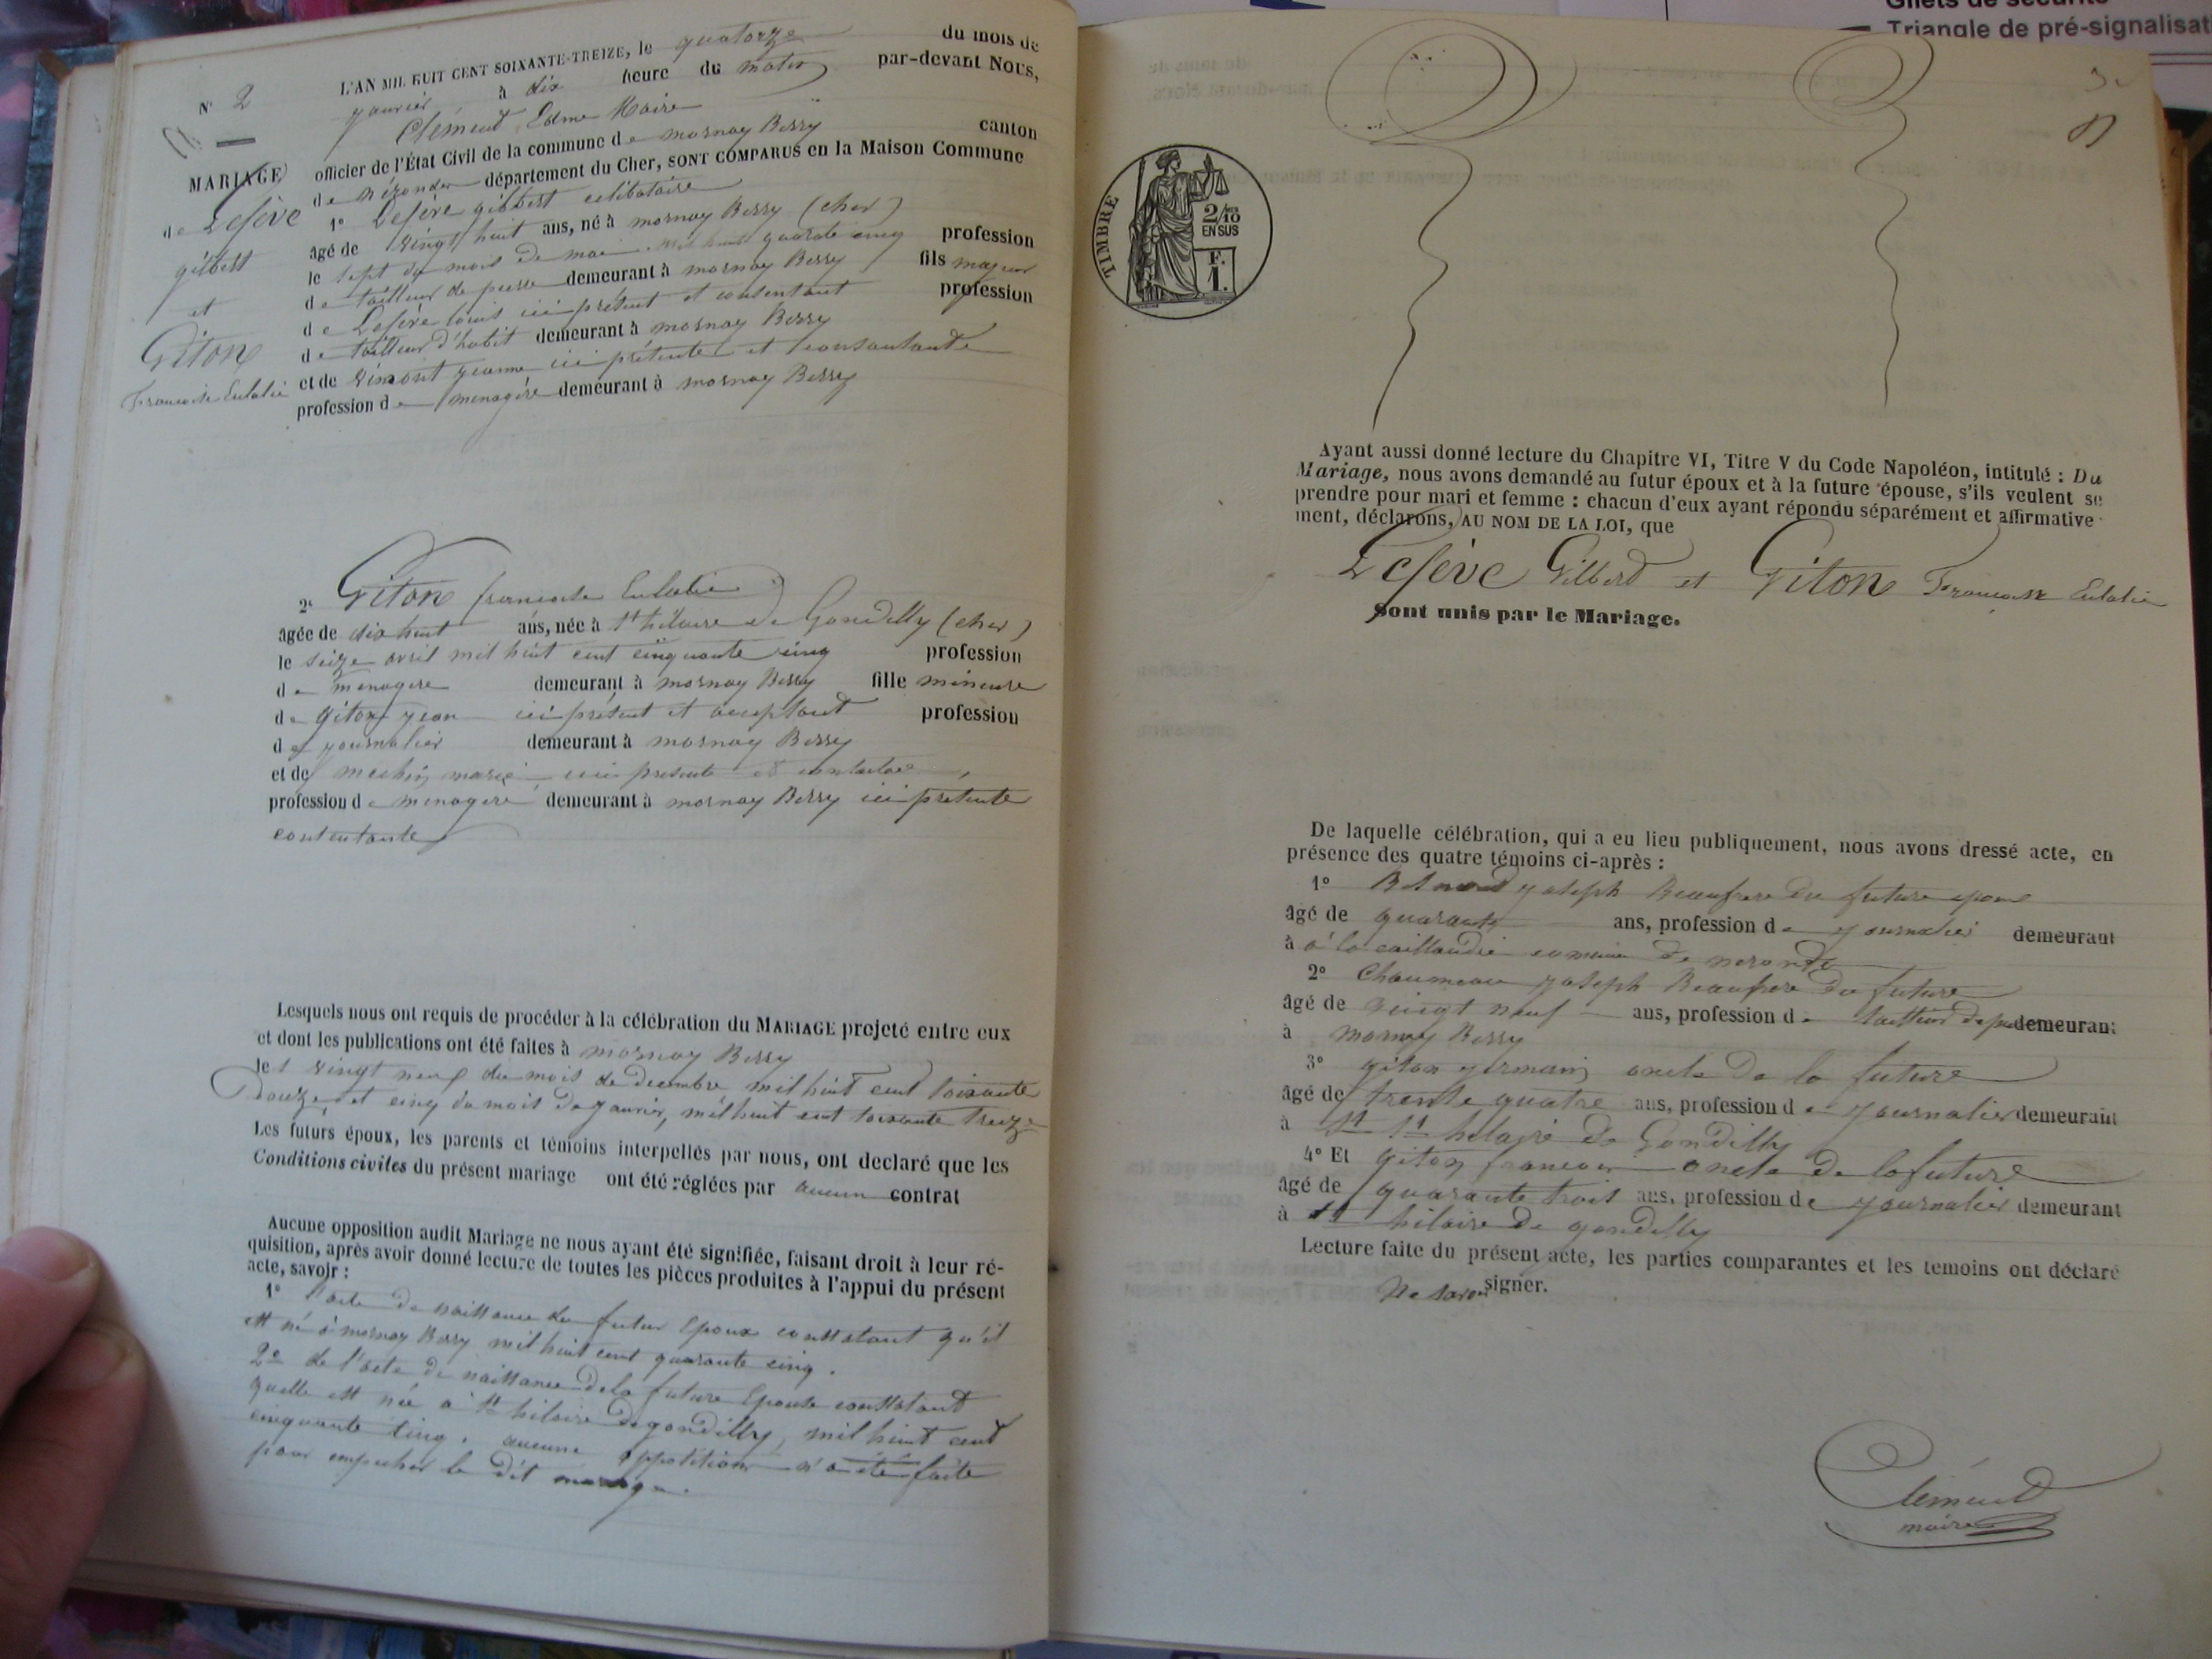 L'AN MIL HUIT CENT SOIXANTE-TREIZE, le quatorze du mois de
janvier à dix heure du matin par-devant Nous,
N° 2
Clément Edme Maire
officier de l'État Civil de la commune de mornay Berry canton
de nérondes département du Cher, SONT COMPARUS en la Maison Commune
MARIAGE
de Lefève
gilbert
et
Giton
Francoise Eulalie
1° Lefève gilbert celibataire
âgé de vingt huit ans, né à mornay Berry (cher)
le sept du mois de mai mil huit quarante cinq profession
de tailleur de pierre demeurant à mornay Berry fils majeur
de Lefève louis ici présent et consentant profession
de tailleur d'habit demeurant à mornay Berry
et de jeanne ici présente et consantante
profession de menagère demeurant à mornay Berry
2° Giton francoise Eulalie
âgée de dix huit ans, née à st hilaire de Gondilly (cher)
le seize avril mil huit cent cinquante cinq profession
de menagere demeurant à mornay Berry fille mineure
de giton jean ici présent et acceptant profession
de journalier demeurant à mornay Berry
et de marie ici presente et
profession de menagere demeurant à mornay Berry ici présente
contentante
Lesquels nous ont requis de procéder à la célébration du MARIAGE projeté entre eux
et dont les publications ont été faites à mornay Berry
les vingt neuf du mois de decembre mil huit cent soixante
Douze et cinq du mois de janvier, mil huit cent soixante treize
Les futurs époux, les parents et témoins interpellés par nous, ont declaré que les
Conditions civiles du présent mariage ont été réglées par aucun contrat
Aucune opposition audit Mariage ne nous ayant été signifiée, faisant droit à leur ré-
quisition, après avoir donné lecture de toutes les pièces produites à l'appui du présent
acte, savoir :
1° l'acte de naissance du futur Epoux constatant qu'il
est né à mornay Berry mil huit cent quarante cinq.
2° de l'acte de naissance de la future Epouse constatant
quelle est née à st hilaire de gondilly, mil huit cent
cinquante cinq. aucune opposition n'a été faite
pour empecher le dit mariage.
Gilets de sécurité
Triangle de pré-signalisat
TIMBRE
2/10
EN SUS
F.
1.
Ayant aussi donné lecture du Chapitre VI, Titre V du Code Napoléon, intitulé : Du
Mariage, nous avons demandé au futur époux et à la future épouse, s'ils veulent se
prendre pour mari et femme : chacun d'eux ayant répondu séparément et affirmative-
ment, déclarons, AU NOM DE LA LOI, que
Lefève Gilberd et Giton Francoise Eulalie
Sont unis par le Mariage.
De laquelle célébration, qui a eu lieu publiquement, nous avons dressé acte, en
présence des quatre témoins ci-après :
1° joseph Beaufrere du future epoux
âgé de quarante ans, profession de journalier demeurant
à à la caillaudie comune de neronde
2° Chaumeau joseph Beaufrere du future
âgé de vingt neuf ans, profession de demeurant
à mornay Berry
3° giton germain oncle de la future
âgé de trente quatre ans, profession de journalier demeurant
à st hilaire de Gondilly
4° Et giton francois oncle de la future
âgé de quarante trois ans, profession de journalier demeurant
à st hilaire de gondilly
Lecture faite du présent acte, les parties comparantes et les temoins ont déclaré
Ne savoir signer.
Clément
maire